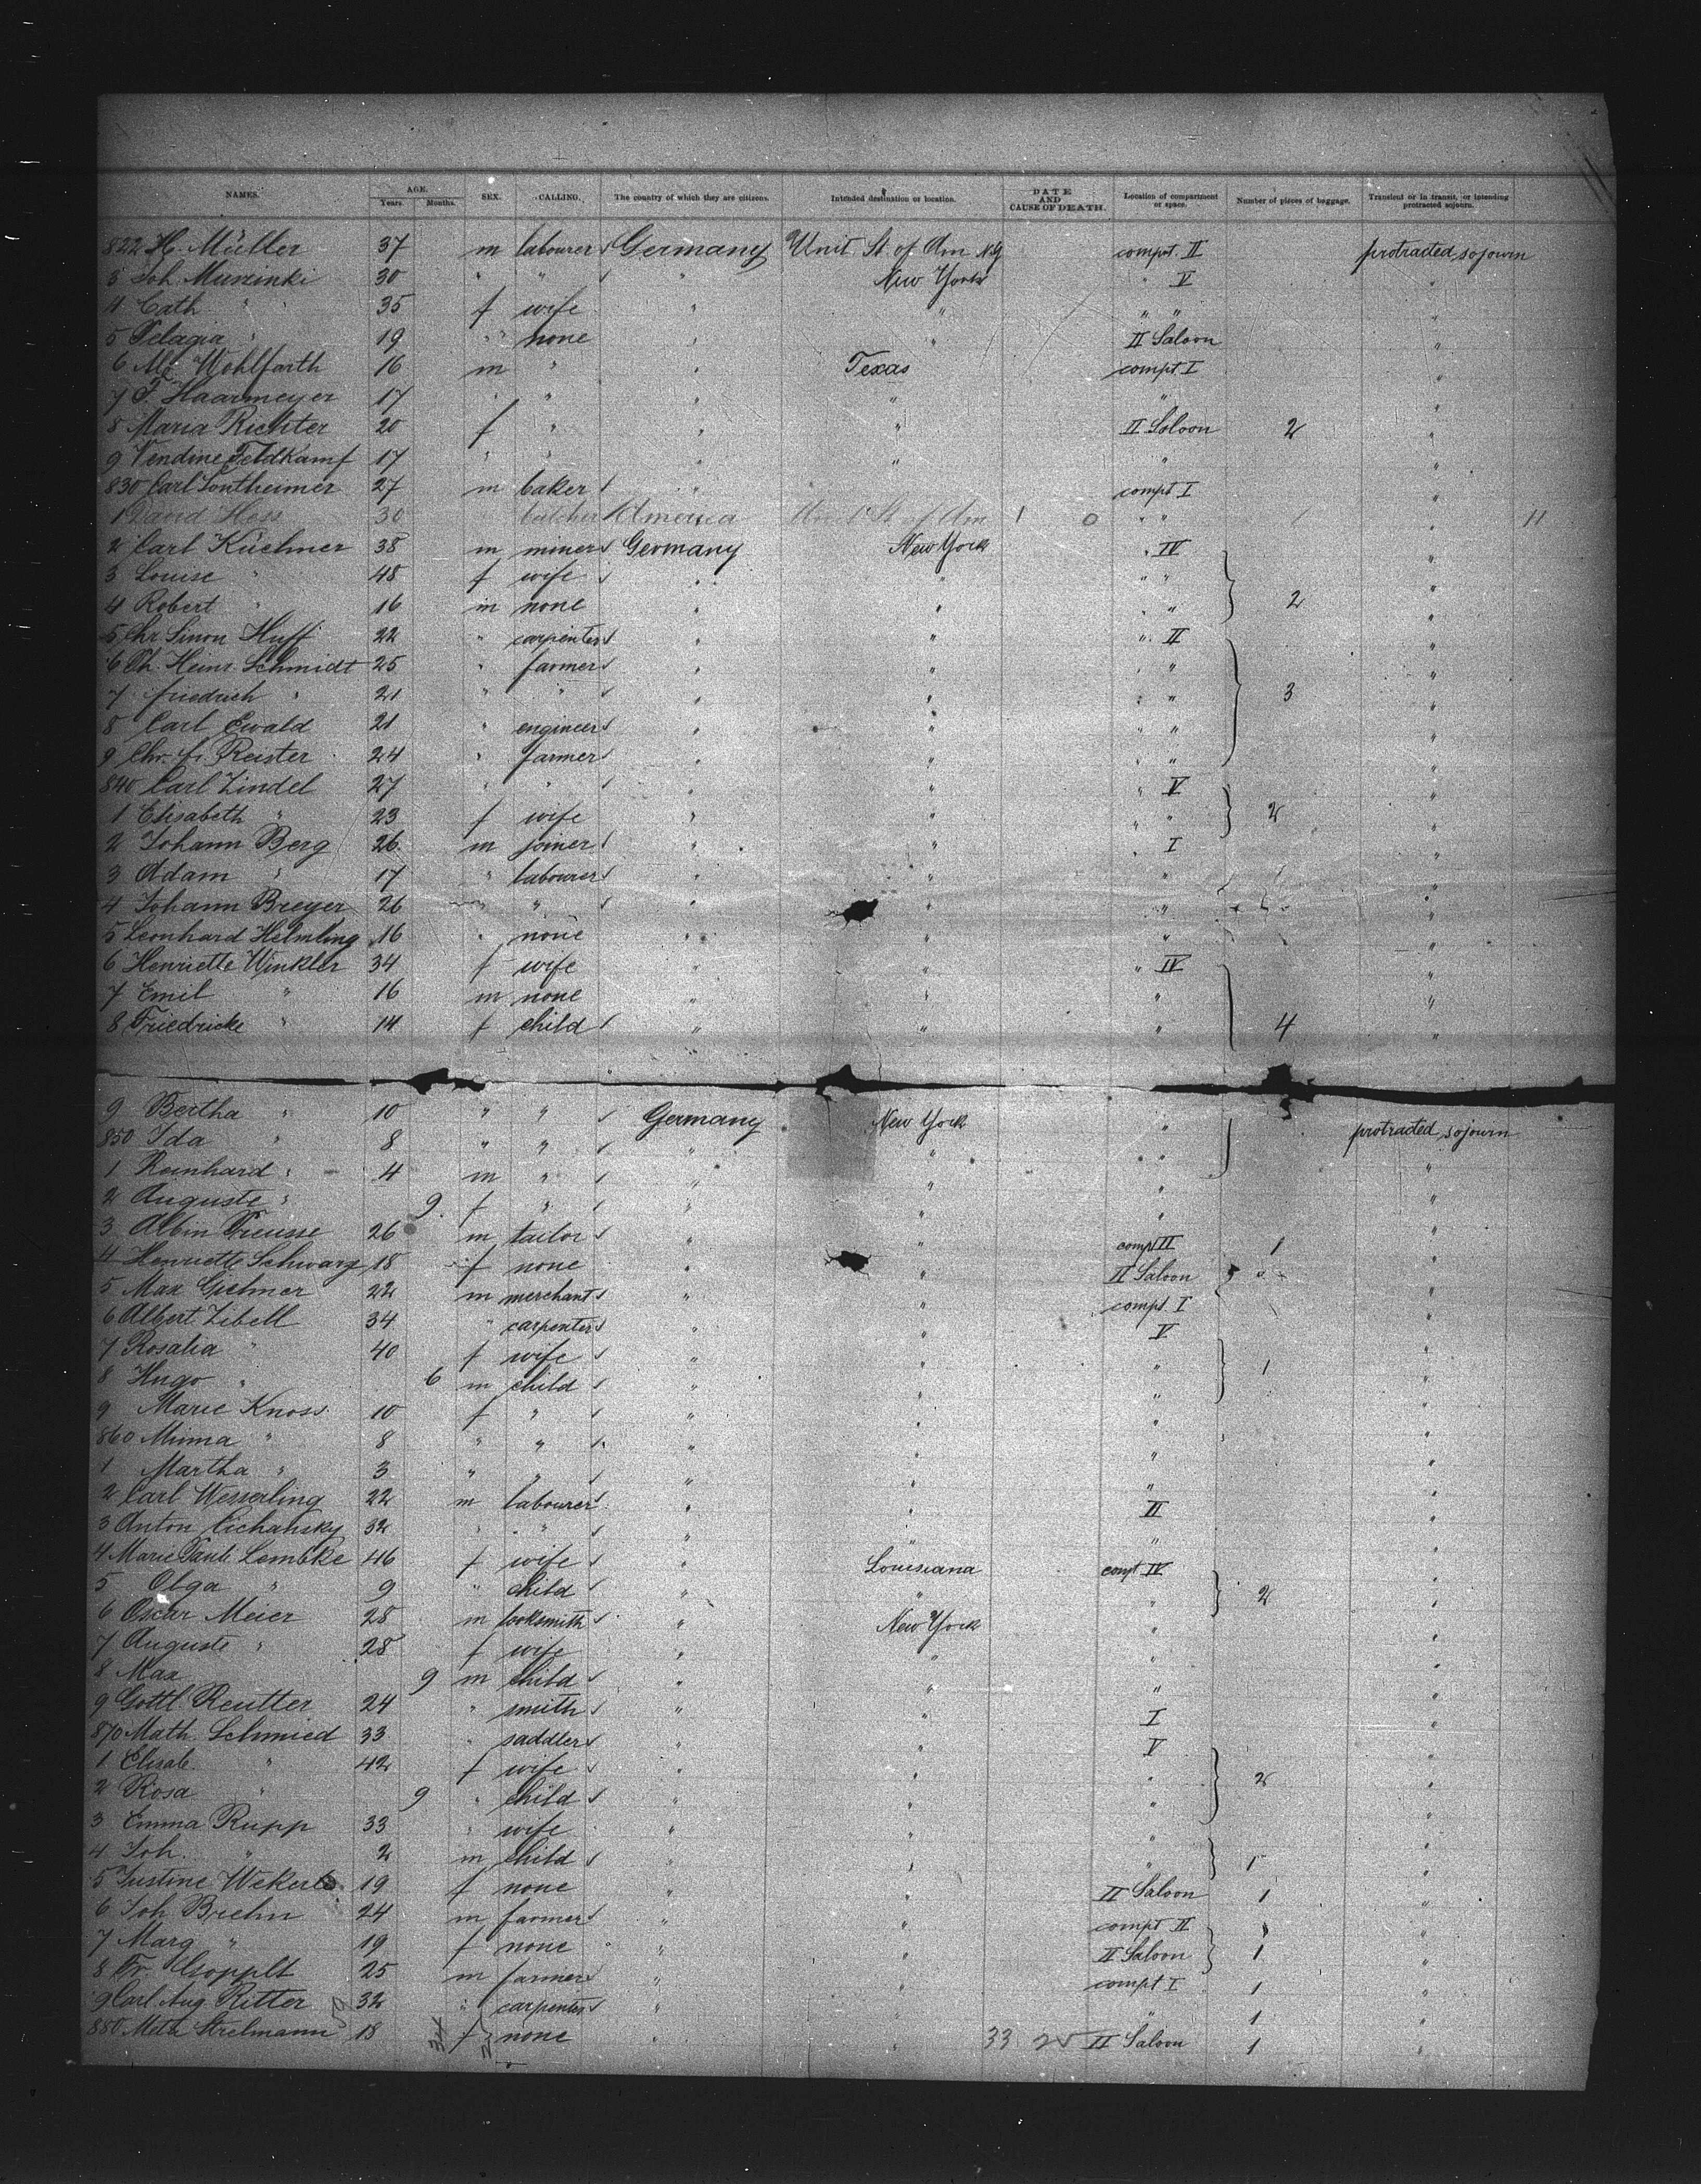 NAMES. AGE. Years. Months. SEX. CALLING. The country of which they are citizens. Intended destination or location. DATE AND CAUSE OF DEATH. Location of compartment or space. Number of pieces of baggage. Transient or in transit, or intending protracted sojourn.
822 H. Müller 37 m labourer Germany Unit. St. of Am NY compt. II protracted sojourn
3 Joh. Murzinki 30 " " " New York " V "
4 Cath " 35 f wife " " " " "
5 Pelagia " 19 " none " " II Saloon "
6 Wohlfarth 16 m " " Texas compt I "
7 F. Haarmeyer 17 " " " " " "
8 Maria Richter 20 f " " " II Saloon 2 "
9 Vendine Feldkamp 17 " " " " " "
830 Carl Sontheimer 27 m baker " compt I "
1 David Hess 30 butcher America Unit St of Am 1 0 " " 1 " 11
2 Carl Küchner 38 m miner Germany New York " IV "
3 Louise " 48 f wife " " " " "
4 Robert " 16 m none " " " " 2 "
5 Chr Simon Huff 22 " carpenter " " " II "
6 Ph. Heinr. Schmidt 25 " farmer " " " "
7 Friedrich " 21 " " " " " " 3 "
8 Carl Ewald 21 " engineer " " " " "
9 Chr. f. Reister 24 " farmer " " " " "
840 Carl Zindel 27 " " " " " V "
1 Elisabeth " 23 f wife " " " " 2 "
2 Johann Berg 26 m joiner " " I "
3 Adam " 17 " labourer " " " "
4 Johann Breyer 26 " " " " "
5 Leonhard Helmling 16 " none " " " "
6 Henriette Winkler 34 f wife " " " IV "
7 Emil " 16 m none " " " "
8 Friedricke " 14 f child " " " 4 "
9 Bertha " 10 " " Germany New York " protracted sojourn
850 Ida " 8 " " " " " " "
1 Reinhard " 4 m " " " " "
2 Auguste " 9 f " " " " "
3 Albin Preusse 26 m tailor " " compt II 1 "
4 Henriette Schwarz 18 f none " " II Saloon "
5 Max Gielmer 22 m merchant " " compt I "
6 Albert Zibell 34 " carpenter " " V "
7 Rosalia " 40 f wife " " " 1 "
8 Hugo " 6 m child " " " "
9 Marie Knoss 10 f " " " " "
860 Minna " 8 " " " " " "
1 Martha " 3 " " " " " "
2 Carl Wesserling 22 m labourer " " II "
3 Anton Cichansky 32 " " " " " "
4 Marie Paul. Lembke 46 f wife " Louisiana compt IV "
5 Olga " 9 " child " " " 2 "
6 Oscar Meier 28 m locksmith " New York " "
7 Auguste " 28 f wife " " " "
8 Max 9 m child " " " "
9 Gottl. Reutter 24 " smith " " I "
870 Math. Schmied 33 " saddler " " V "
1 Elisab. " 42 f wife " " " 2 "
2 Rosa " 9 " child " " " "
3 Emma Rupp 33 " wife " " " "
4 Joh. " 2 m child " " " 1 "
5 Justine Wekerle 19 f none " " II Saloon 1 "
6 Joh Brehn 24 m farmer " " compt II "
7 Marg " 19 f none " " II Saloon 1 "
8 Fr. Gopplt 25 m farmer " " compt I 1 "
9 Carl Aug Ritter 32 " carpenter " " 1 "
880 Meta Strelmann 18 f none " " 33 25 II Saloon 1 "